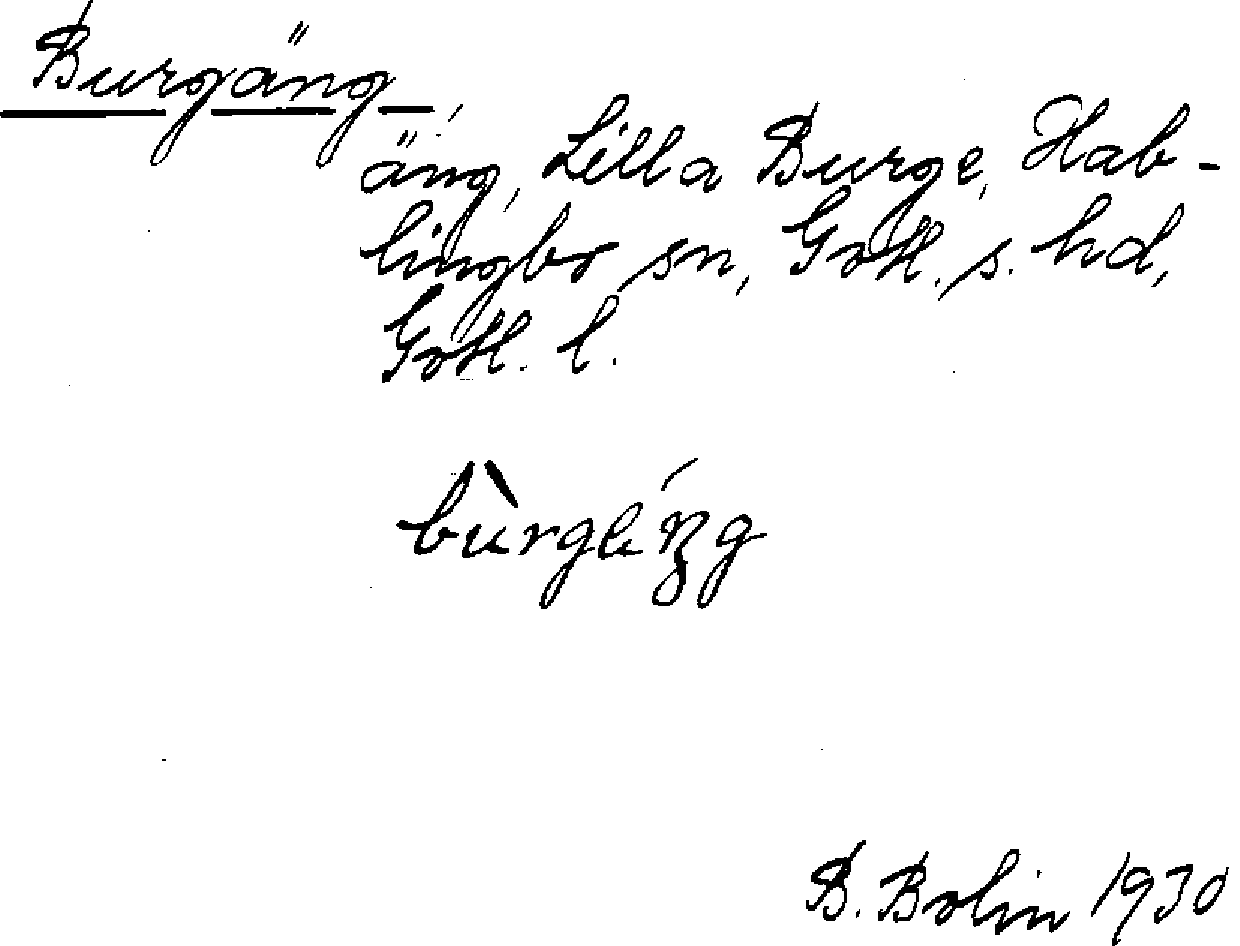 Burgäng,
äng, Lilla Burge, Hab-
lingbo sn, Gotl. s. hd,
Gotl. l.
B. Bolin 1930